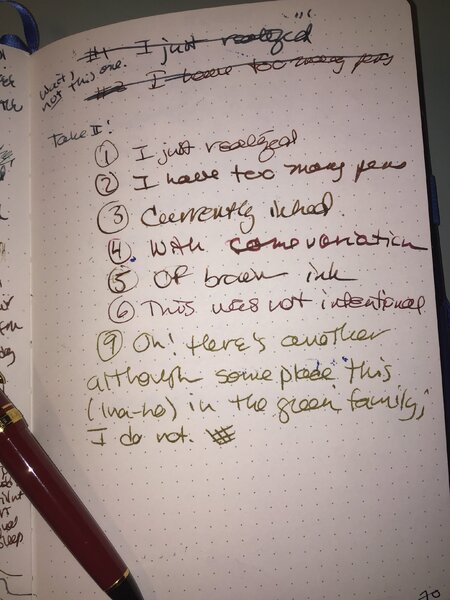 #1 I just realized
Wait!
not this one.
#2 I have too many pens
Take II:
① I just realized
② I have too many pens
③ Currently inked.
④ With some variation
⑤ Of brown ink
⑥ This was not intentional
⑨ Oh! Here's another
although some place this
(Ina-ho) in the green family,
I do not.
70